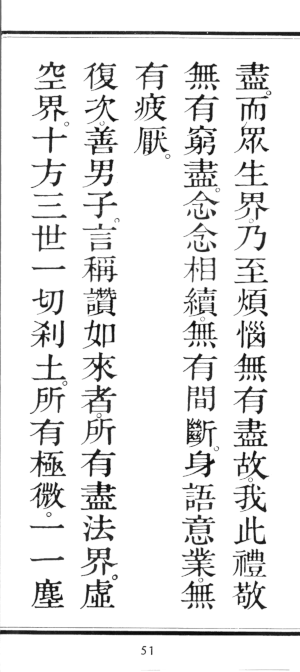 盡。而眾生界。乃至煩惱無有盡故。我此禮敬
無有窮盡。念念相續。無有間斷。身語意業。無
有疲厭。
復次。善男子。言稱讚如來者。所有盡法界。虛
空界。十方三世一切剎土。所有極微。一一塵
51